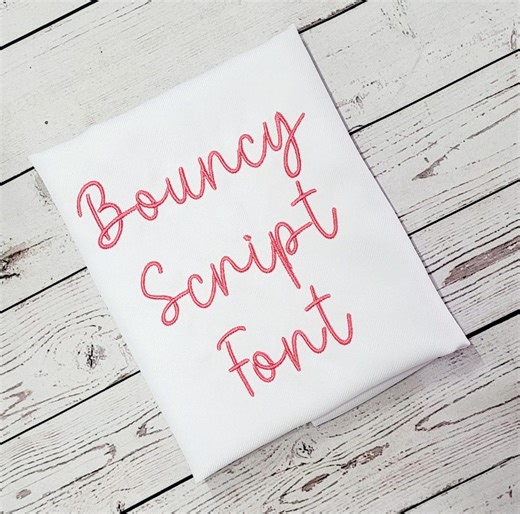 Bouncy
Script
Font